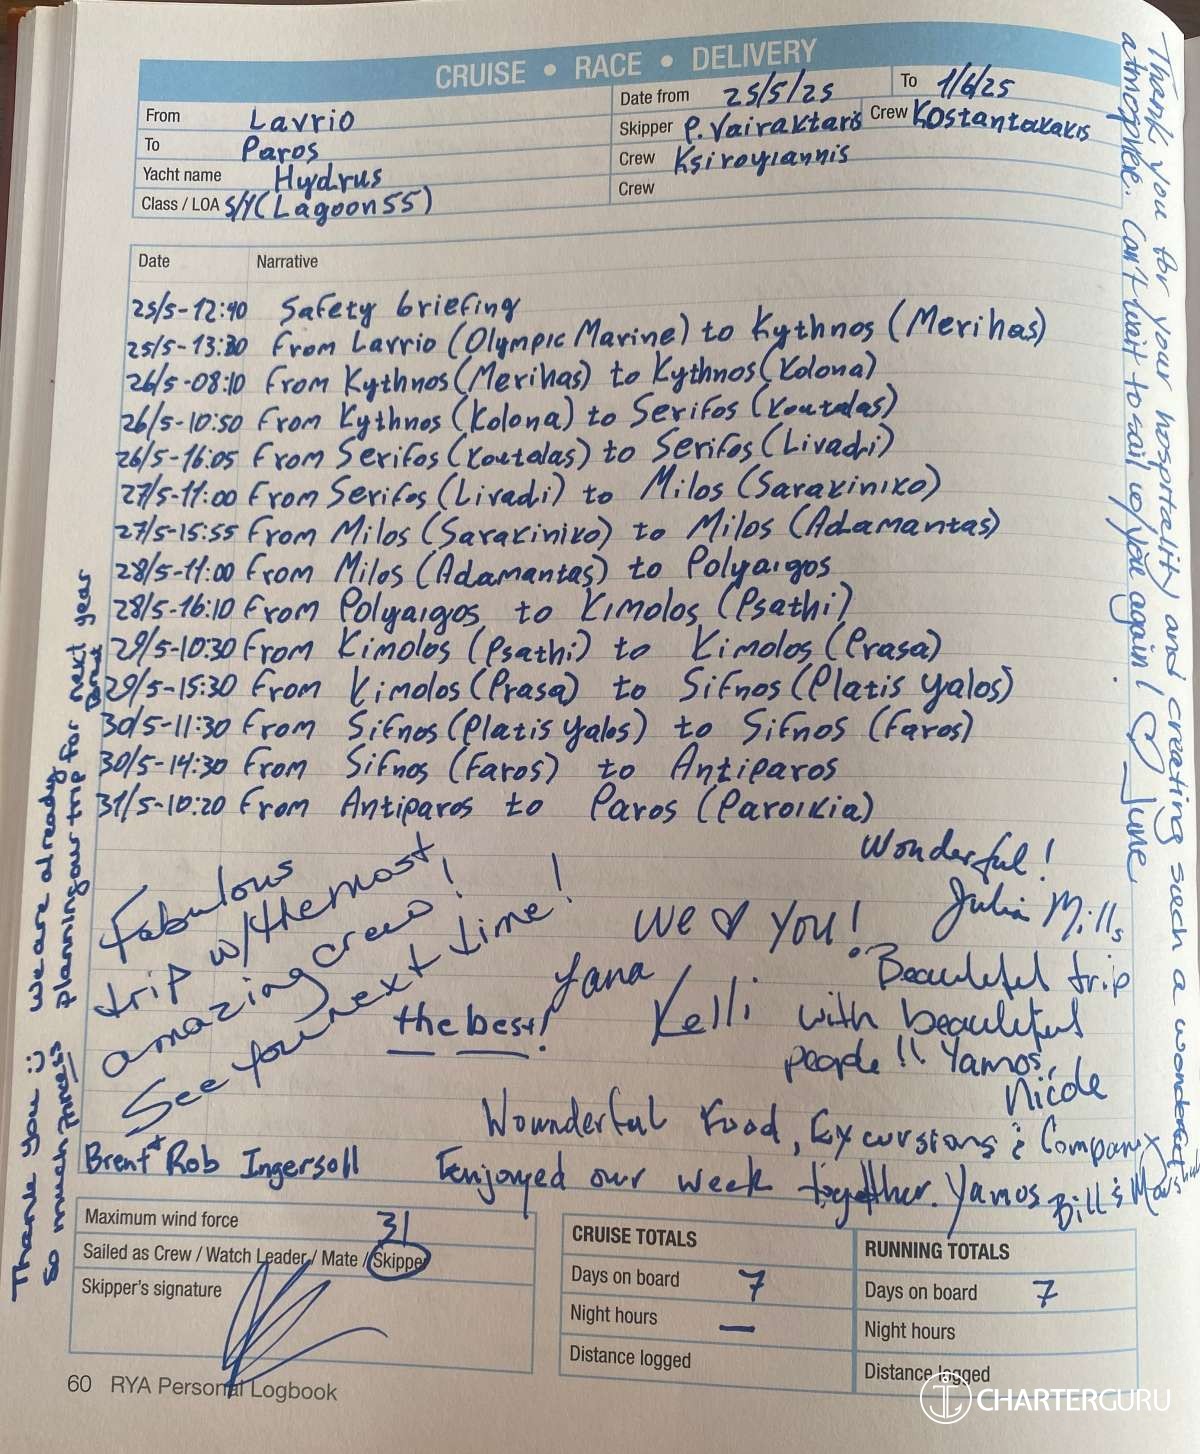 CRUISE • RACE • DELIVERY
From Lavrio
To Paros
Yacht name Hydrus
Class / LOA S/Y (Lagoon 55)
Date from 25/5/25 To 1/6/25
Skipper P. Vairaktaris Crew Kostantakakis
Crew Ksirogiannis
Crew
Date Narrative
25/5-12:40 Safety briefing
25/5-13:30 From Lavrio (Olympic Marine) to Kythnos (Merihas)
26/5-08:10 From Kythnos (Merihas) to Kythnos (Kolona)
26/5-10:50 From Kythnos (Kolona) to Serifos (Koutalas)
26/5-16:05 From Serifos (Koutalas) to Serifos (Livadi)
27/5-11:00 From Serifos (Livadi) to Milos (Sarakiniko)
27/5-15:55 From Milos (Sarakiniko) to Milos (Adamantas)
28/5-11:00 From Milos (Adamantas) to Polyaigos
28/5-16:10 From Polyaigos to Kimolos (Psathi)
29/5-10:30 From Kimolos (Psathi) to Kimolos (Prasa)
29/5-15:30 From Kimolos (Prasa) to Sifnos (Platis Yalos)
30/5-11:30 From Sifnos (Platis Yalos) to Sifnos (Faros)
30/5-14:30 From Sifnos (Faros) to Antiparos
31/5-10:20 From Antiparos to Paros (Paroikia)
Wonderful!
Julia Mills
Fabulous
trip w/the most
amazing crew!
See you next time!
Brent + Rob Ingersoll
We ♥ You!
Yana
the best!
Kelli
Beautiful trip
with beautiful
people!! Yamos,
Nicole
Wounderful Food, Excursions & Company
I enjoyed our week together. Yamos Bill &
Thank you for your hospitality and creating such a wonderful
atmosphere. Can't wait to sail w/you again! ♡ June
Thank you :) we are already
So much planning our trip for next year
Maximum wind force 31
Sailed as Crew / Watch Leader / Mate / Skipper
Skipper's signature
CRUISE TOTALS
Days on board 7
Night hours —
Distance logged
RUNNING TOTALS
Days on board 7
Night hours
Distance logged
60 RYA Personal Logbook
CHARTERGURU